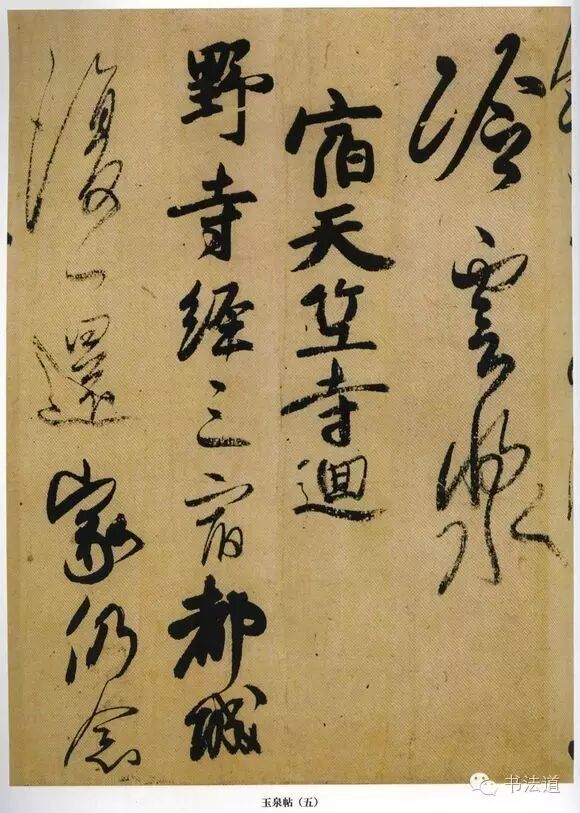 冷雲漿
宿天竺寺迴
野寺經三宿都城
復一還家仍念
玉泉帖（五）
书法道